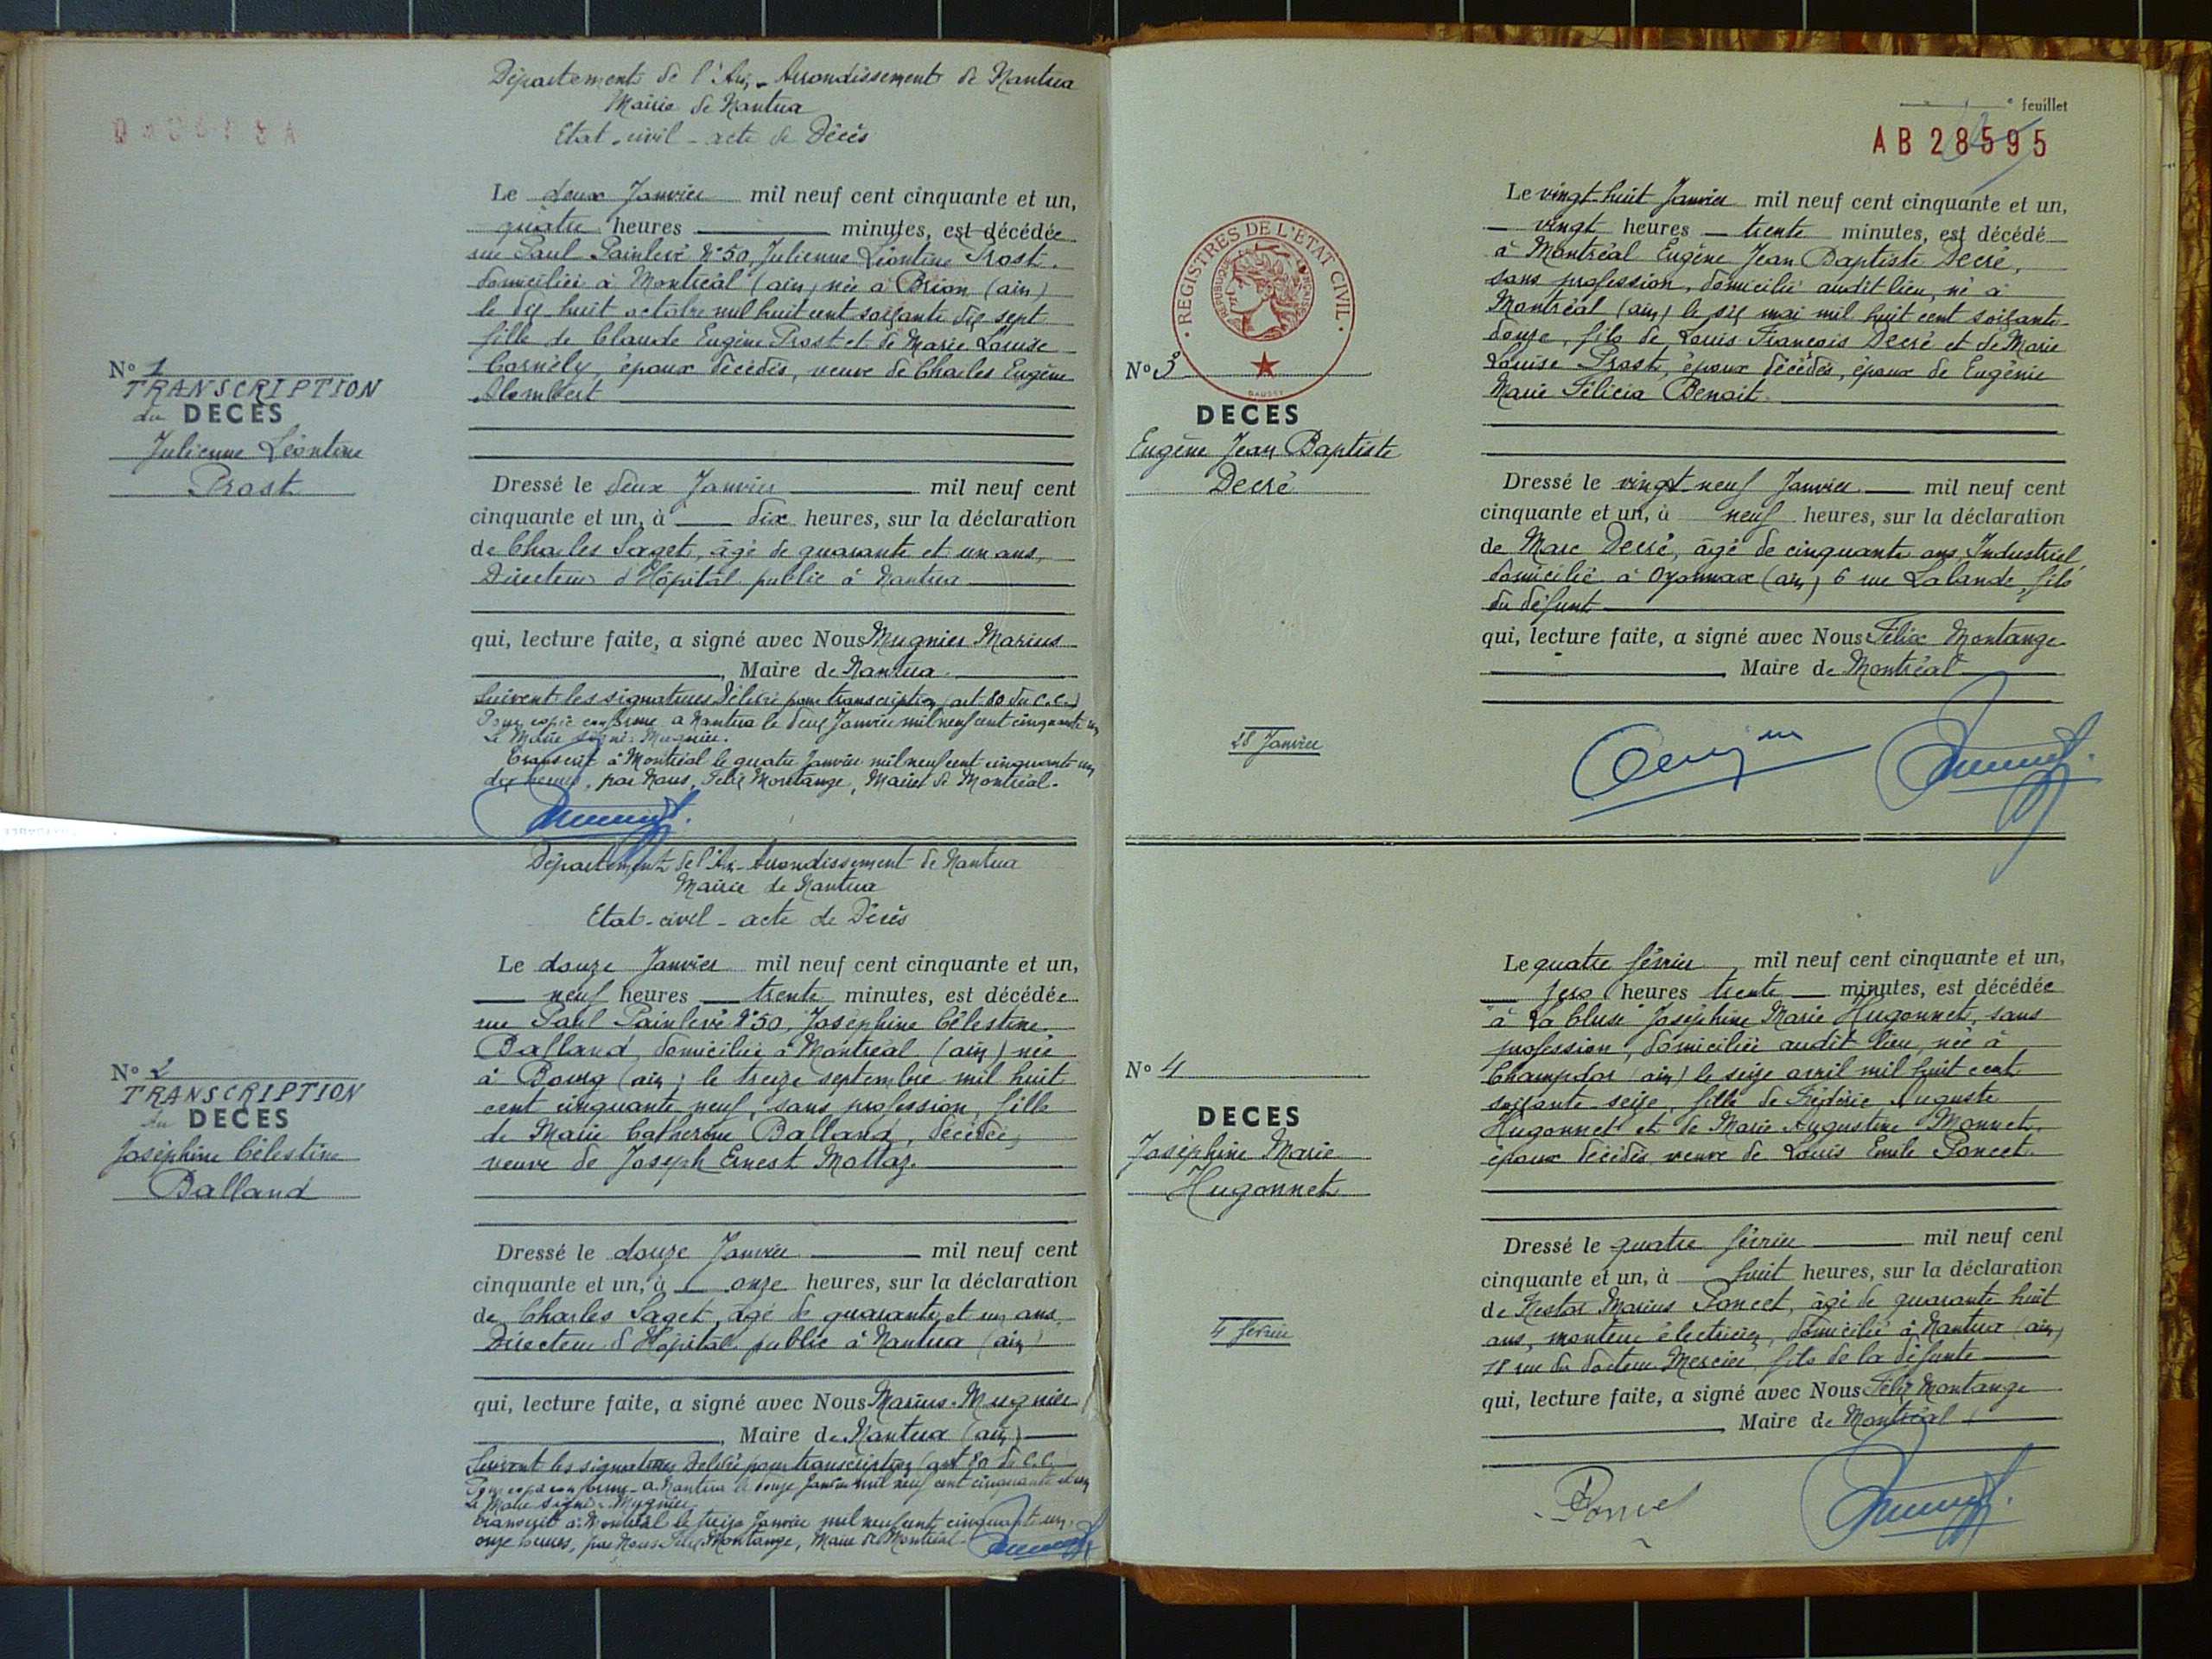 Département de l'Ain - Arrondissement de Nantua
Mairie de Nantua
Etat-civil - acte de Décès
N° 1
TRANSCRIPTION
du DECES
Julienne Léontine
Prost
Le deux Janvier mil neuf cent cinquante et un,
quatre heures minutes, est décédée
rue Paul Painlevé N°50, Julienne Léontine Prost.
domiciliée à Montréal (ain) née à Brion (ain)
le dix huit octobre mil huit cent soixante dix sept
fille de Claude Eugène Prost et de Marie Louise
Cornély, époux décédés, veuve de Charles Eugène
Alombert
Dressé le deux Janvier mil neuf cent
cinquante et un, à dix heures, sur la déclaration
de Charles Saget, âgé de quarante et un ans,
Directeur d'Hôpital public à Nantua
qui, lecture faite, a signé avec Nous Mugnier Marius
, Maire de Nantua.
Suivent les signatures Délivré pour transcription (art. 80 du C.C.)
Pour copie conforme a Nantua le deux Janvier mil neuf cent cinquante un
Le Maire signé: Mugnier.
Transcrit à Montréal le quatre Janvier mil neuf cent cinquante un
dix heures, par Nous, Félix Montange, Maire de Montréal.
Département de l'Ain - Arrondissement de Nantua
Mairie de Nantua
Etat-civil - acte de Décès
N° 2
TRANSCRIPTION
du DECES
Joséphine Célestine
Balland
Le douze Janvier mil neuf cent cinquante et un,
neuf heures trente minutes, est décédée
rue Paul Painlevé N°50, Joséphine Célestine
Balland, domiciliée à Montréal (ain) née
à Bourg (ain) le treize septembre mil huit
cent cinquante neuf, sans profession, fille
de Marie Catherine Balland, décédée,
veuve de Joseph Ernest Mottaz.
Dressé le douze Janvier mil neuf cent
cinquante et un, à onze heures, sur la déclaration
de Charles Saget, âgé de quarante et un ans,
Directeur d'Hôpital public à Nantua (ain)
qui, lecture faite, a signé avec Nous Marius Mugnier
, Maire de Nantua (ain)
Suivent les signatures Délivré pour transcription (art 80 du C.C.
Pour copie conforme - a Nantua le douze Janvier mil neuf cent cinquante et un
Le Maire signé: Mugnier
transcrit à Montréal le treize Janvier mil neuf cent cinquante un,
onze heures, par Nous Félix Montange, Maire de Montréal.
feuillet
AB 28595
REGISTRES DE L'ETAT CIVIL
N° 3
DECES
Eugène Jean Baptiste
Decré
28 Janvier
Le vingt-huit Janvier mil neuf cent cinquante et un,
vingt heures trente minutes, est décédé
à Montréal Eugène Jean Baptiste Decré,
sans profession, domicilié audit lieu, né à
Montréal (ain) le six mai mil huit cent soixante
douze, fils de Louis François Decré et de Marie
Louise Prost, époux décédés, époux de Eugénie
Marie Félicia Benoit.
Dressé le vingt-neuf Janvier mil neuf cent
cinquante et un, à neuf heures, sur la déclaration
de Marc Decré, âgé de cinquante ans, Industriel,
domicilié à Oyonnax (ain) 6 rue Lalande, fils
du défunt
qui, lecture faite, a signé avec Nous Félix Montange
, Maire de Montréal
N° 4
DECES
Joséphine Marie
Hugonnet
4 février
Le quatre février mil neuf cent cinquante et un,
zero heures trente minutes, est décédée
à La Cluse Joséphine Marie Hugonnet, sans
profession, domiciliée audit lieu, née à
Champdor (ain) le seize avril mil huit cent
soixante-seize, fille de Frédéric Auguste
Hugonnet et de Marie Augustine Monnet.
époux décédés, veuve de Louis Emile Poncet.
Dressé le quatre février mil neuf cent
cinquante et un, à huit heures, sur la déclaration
de Nestor Marius Poncet, âgé de quarante huit
ans, monteur électricien, domicilié à Nantua (ain)
18 rue du docteur Mercier, fils de la défunte
qui, lecture faite, a signé avec Nous Félix Montange
, Maire de Montréal